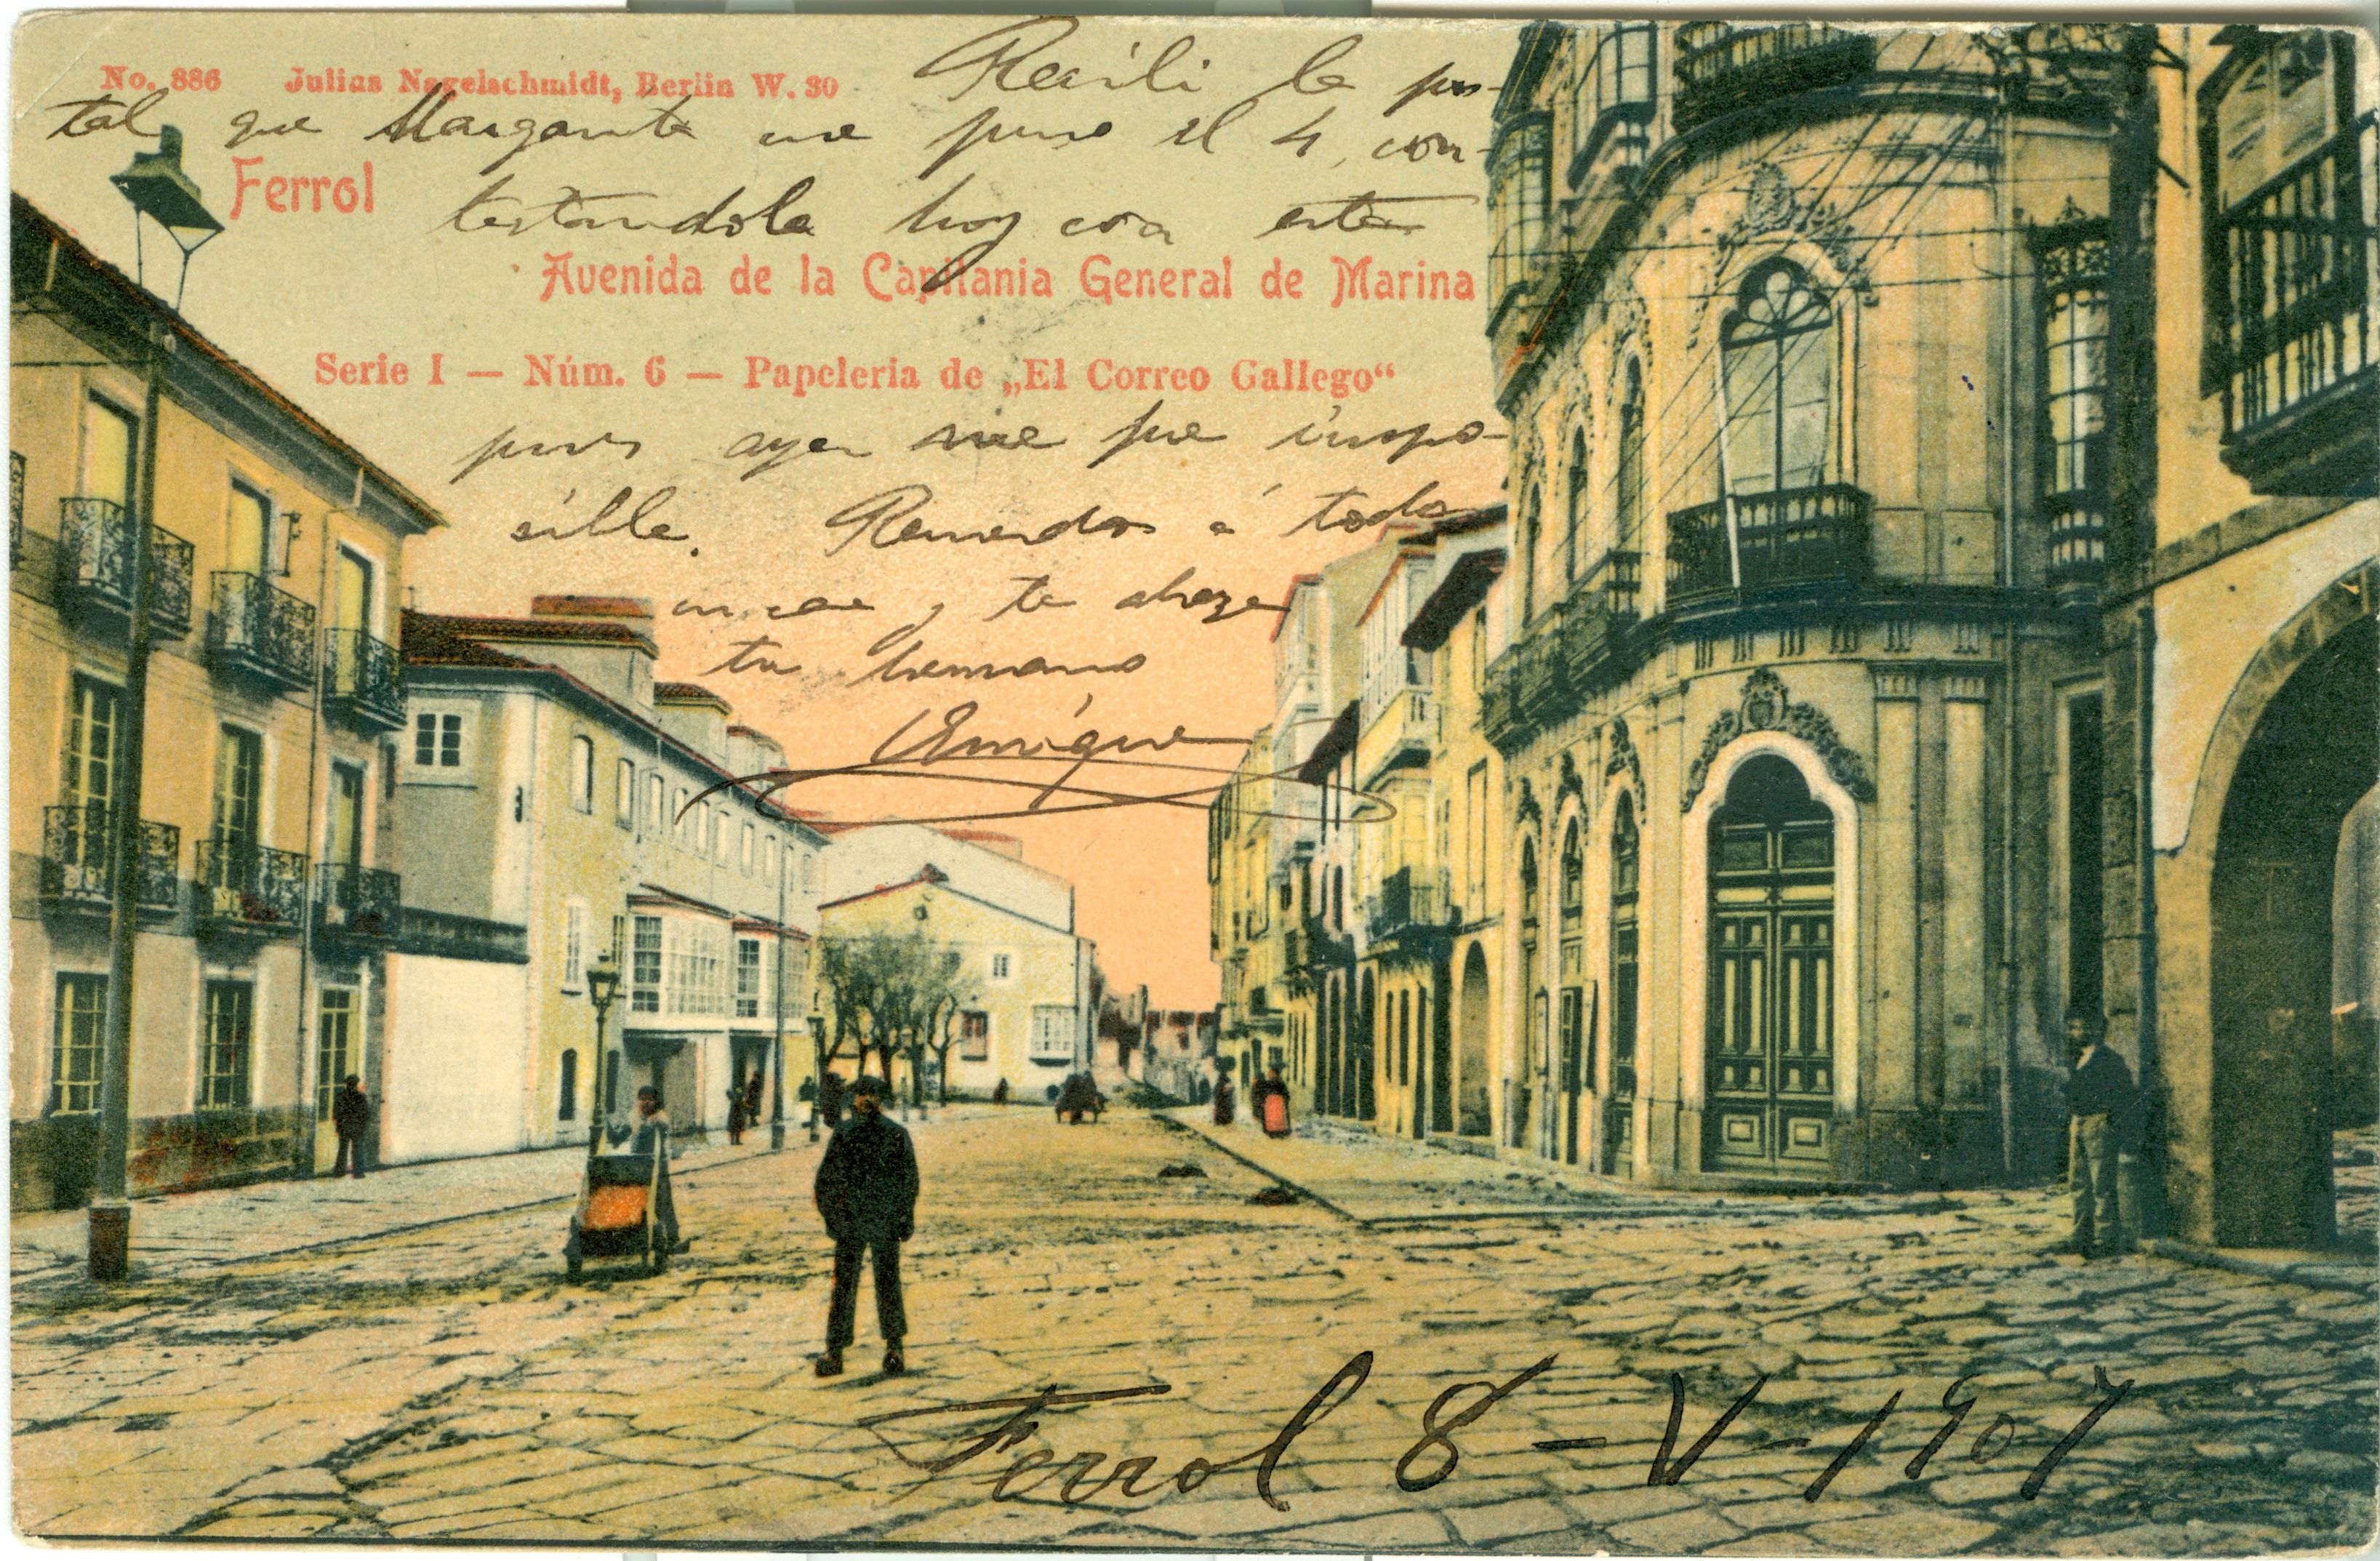 No. 886 Julius Nagelschmidt, Berlin W. 30
Recibi la pos-
tal que Margarita me puso el 4, con-
Ferrol
testandola hoy con esta
Avenida de la Capitania General de Marina
Serie I — Núm. 6 — Papeleria de „El Correo Gallego“
pues ayer me fue impo-
sible. Recuerdos á todos
y te abraza
tu hermano
Enrique
Ferrol 8-V-1907